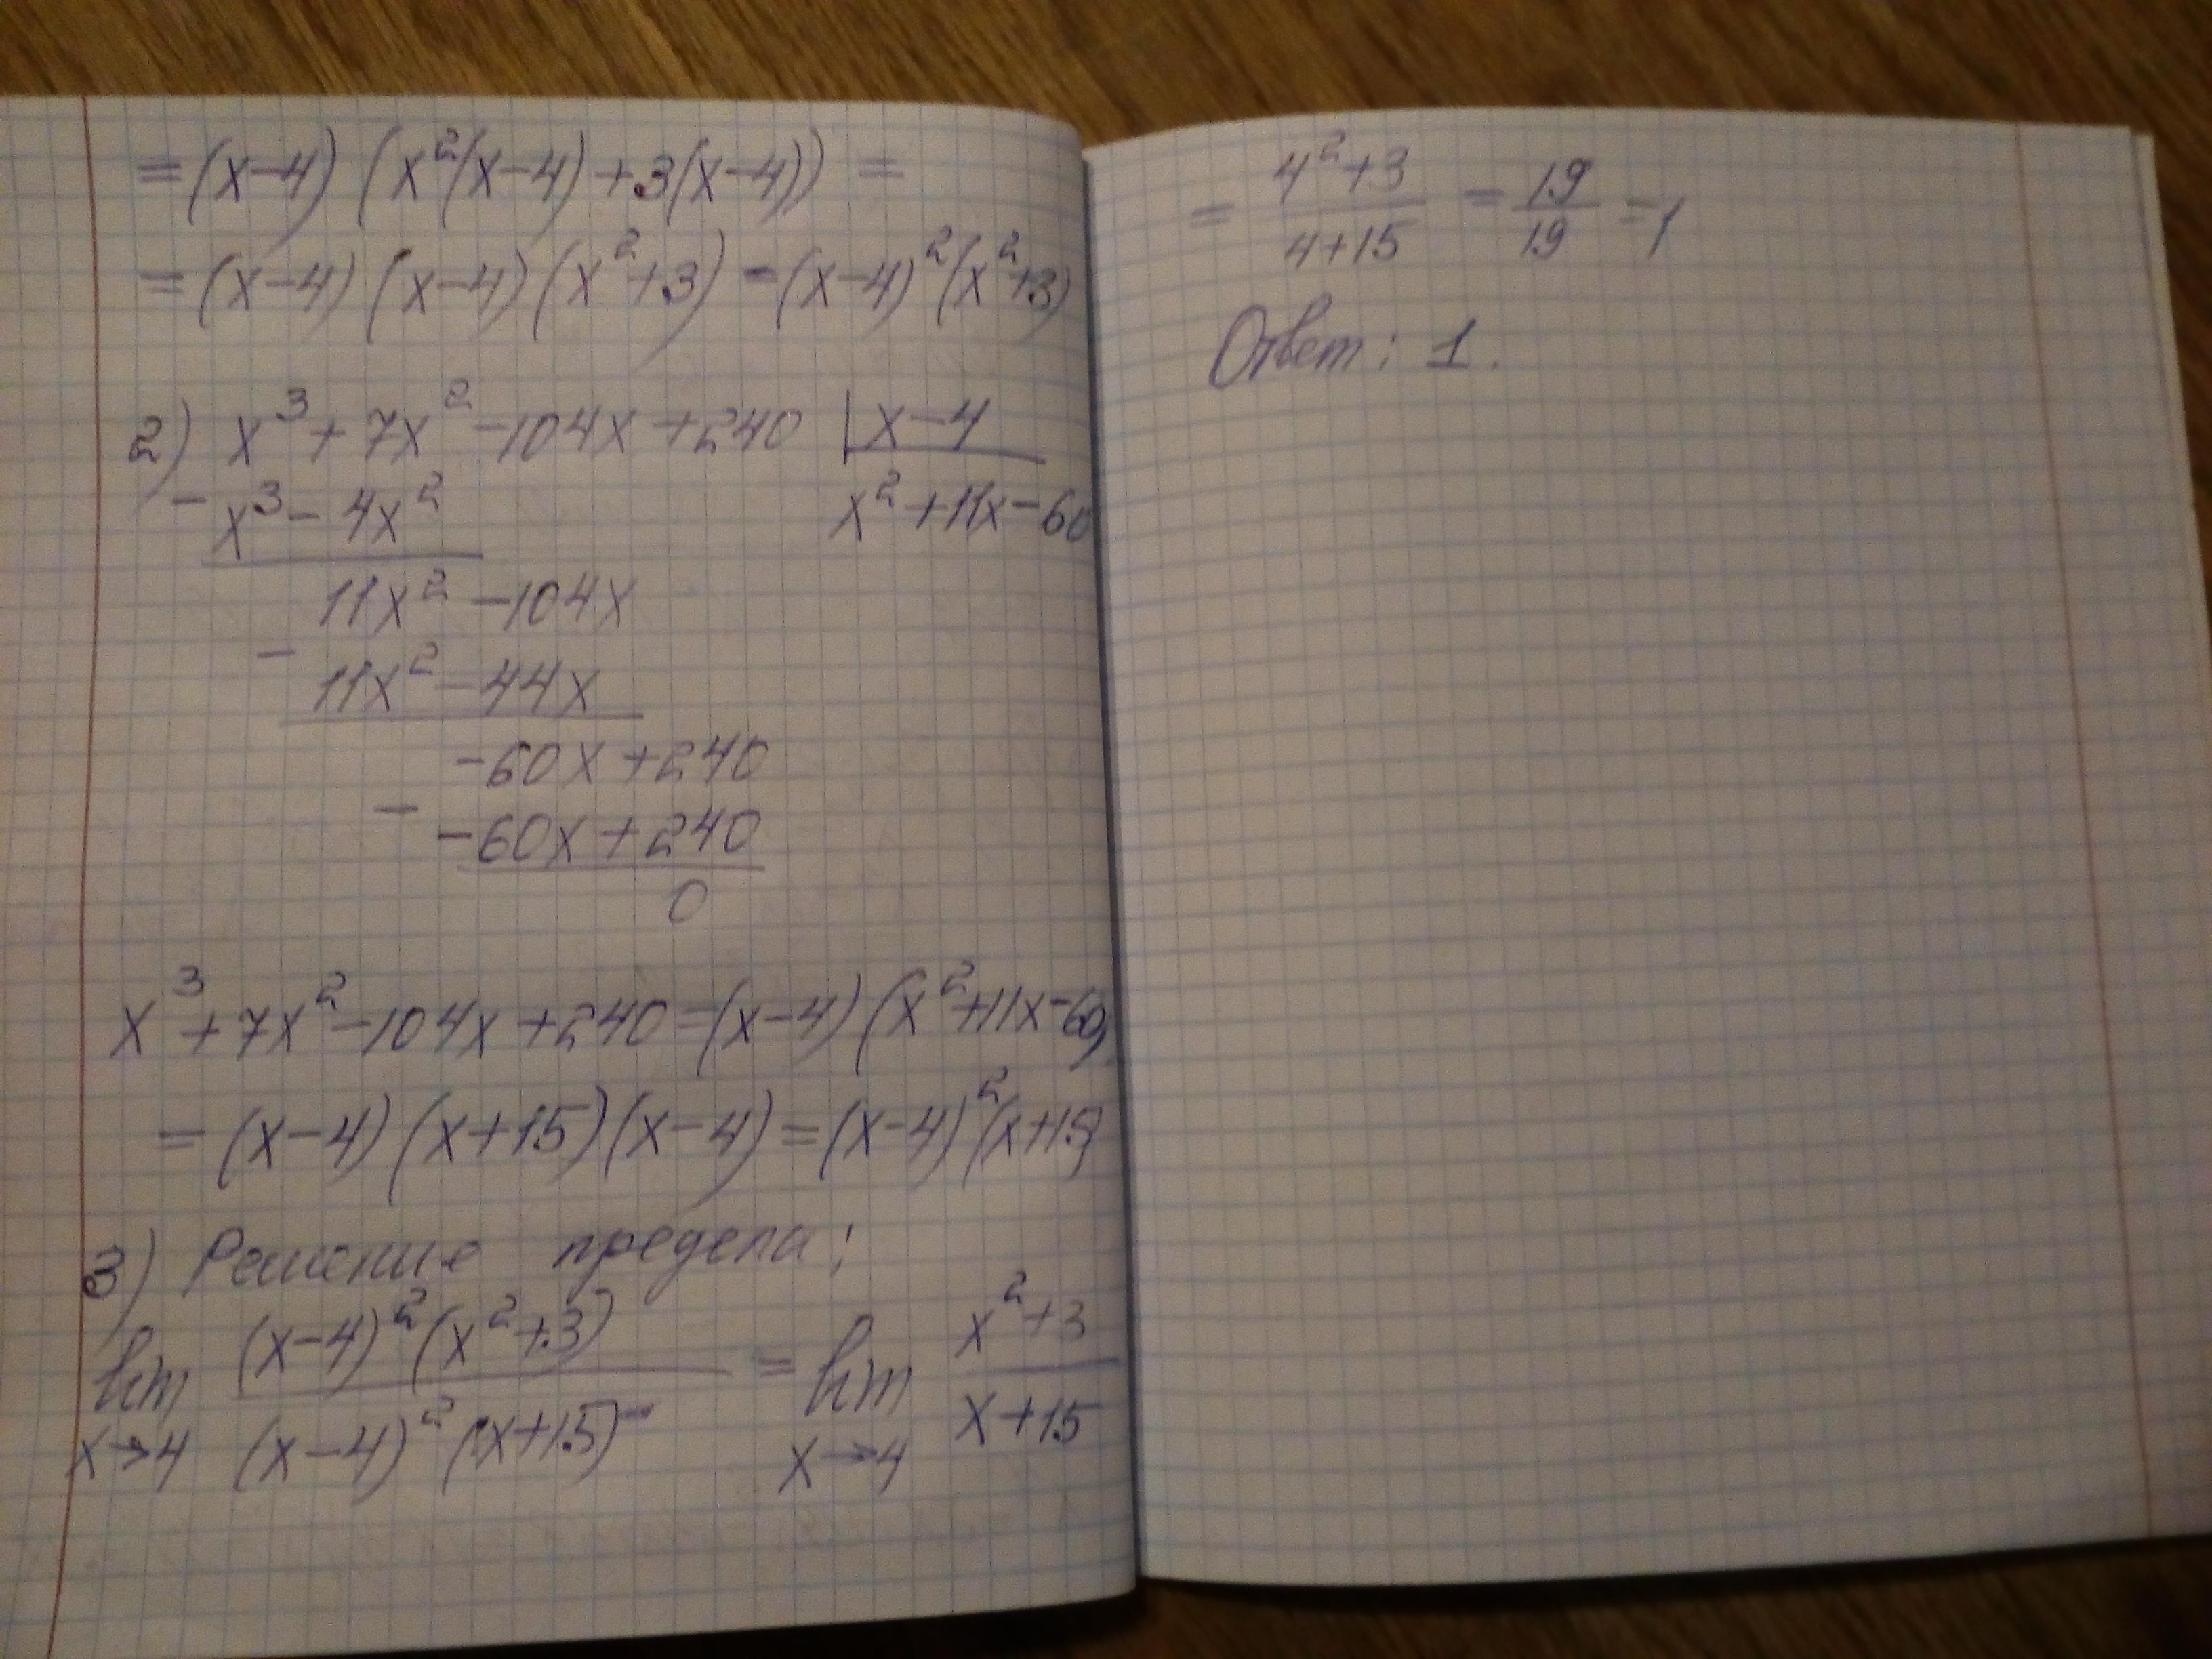 = (x-4) (x²(x-4)+3(x-4)) =
= (x-4) (x-4) (x²+3) = (x-4)²(x²+3)
2) x³ + 7x² - 104x + 240 | x-4
- x³ - 4x² x² + 11x - 60
11x² - 104x
- 11x² - 44x
-60x + 240
- -60x + 240
0
x³ + 7x² - 104x + 240 = (x-4) (x² + 11x - 60)
= (x-4) (x+15) (x-4) = (x-4)²(x+15)
3) Решение предела:
lim x→4 (x-4)²(x²+3) / (x-4)²(x+15) = lim x→4 x²+3 / x+15
= 4²+3 / 4+15 = 19/19 = 1
Ответ: 1.